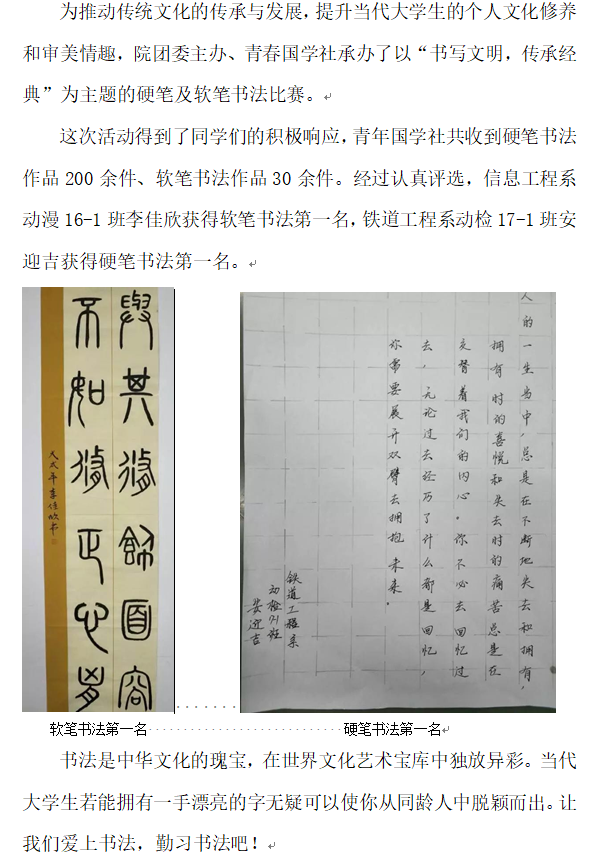 为推动传统文化的传承与发展，提升当代大学生的个人文化修养
和审美情趣，院团委主办、青春国学社承办了以“书写文明，传承经
典”为主题的硬笔及软笔书法比赛。
这次活动得到了同学们的积极响应，青年国学社共收到硬笔书法
作品 200 余件、软笔书法作品 30 余件。经过认真评选，信息工程系
动漫 16-1 班李佳欣获得软笔书法第一名，铁道工程系动检 17-1 班安
迎吉获得硬笔书法第一名。
與其修飾面容
不如修正心胷
李佳欣书
人的一生当中，总是在不断地失去和拥有，
拥有时的喜悦和失去时的痛苦总是在
交替着我们的内心。你不必去回忆过
去，无论过去经历了什么都是回忆，
你需要展开双臂去拥抱未来。
铁道工程系
动检
安迎吉
软笔书法第一名
硬笔书法第一名
书法是中华文化的瑰宝，在世界文化艺术宝库中独放异彩。当代
大学生若能拥有一手漂亮的字无疑可以使你从同龄人中脱颖而出。让
我们爱上书法，勤习书法吧！